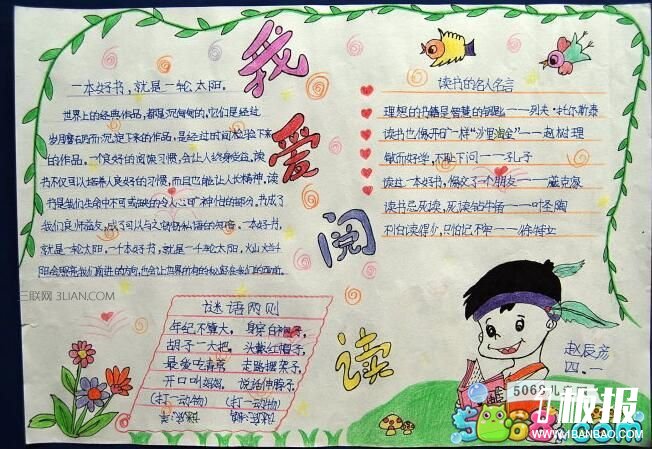 我爱阅读
一本好书，就是一轮太阳。
世界上的经典作品，都是沉甸甸的，它们是经过
岁月磨石而沉淀下来的作品，是经过时间检验下来
的作品，一个良好的阅读习惯，会让人终身受益，读
书不仅可以培养人良好的习惯，而且也能让人长精神，读
书是我们生命中不可或缺的令人心旷神怡的部分，书成了
我们良师益友，成了可以与之窃窃私语的知音，一本好书，
就是一轮太阳，一本好书，就是一轮太阳，
阳会照亮我们前进的方向，也会让世界所有的
读书的名人名言
理想的书籍是智慧的钥匙——列夫·托尔斯泰
读书也像开矿一样"沙里淘金"——赵树理
敏而好学，不耻下问——孔子
读过一本好书，像交了一个朋友——臧克家
读书忌死读，死读钻牛角——叶圣陶
不怕读得少，只怕记不牢——徐特立
谜语两则
年纪不算大，
胡子一大把，
最爱吃青草，
开口叫妈妈，
(打一动物)
身穿白袍子，
头戴红帽子，
走路摆架子，
说话伸脖子，
(打一动物)
赵辰彦
四.一
三联网 3LIAN.COM
5068儿
5068.com
1板报
WWW.1BANBAO.COM